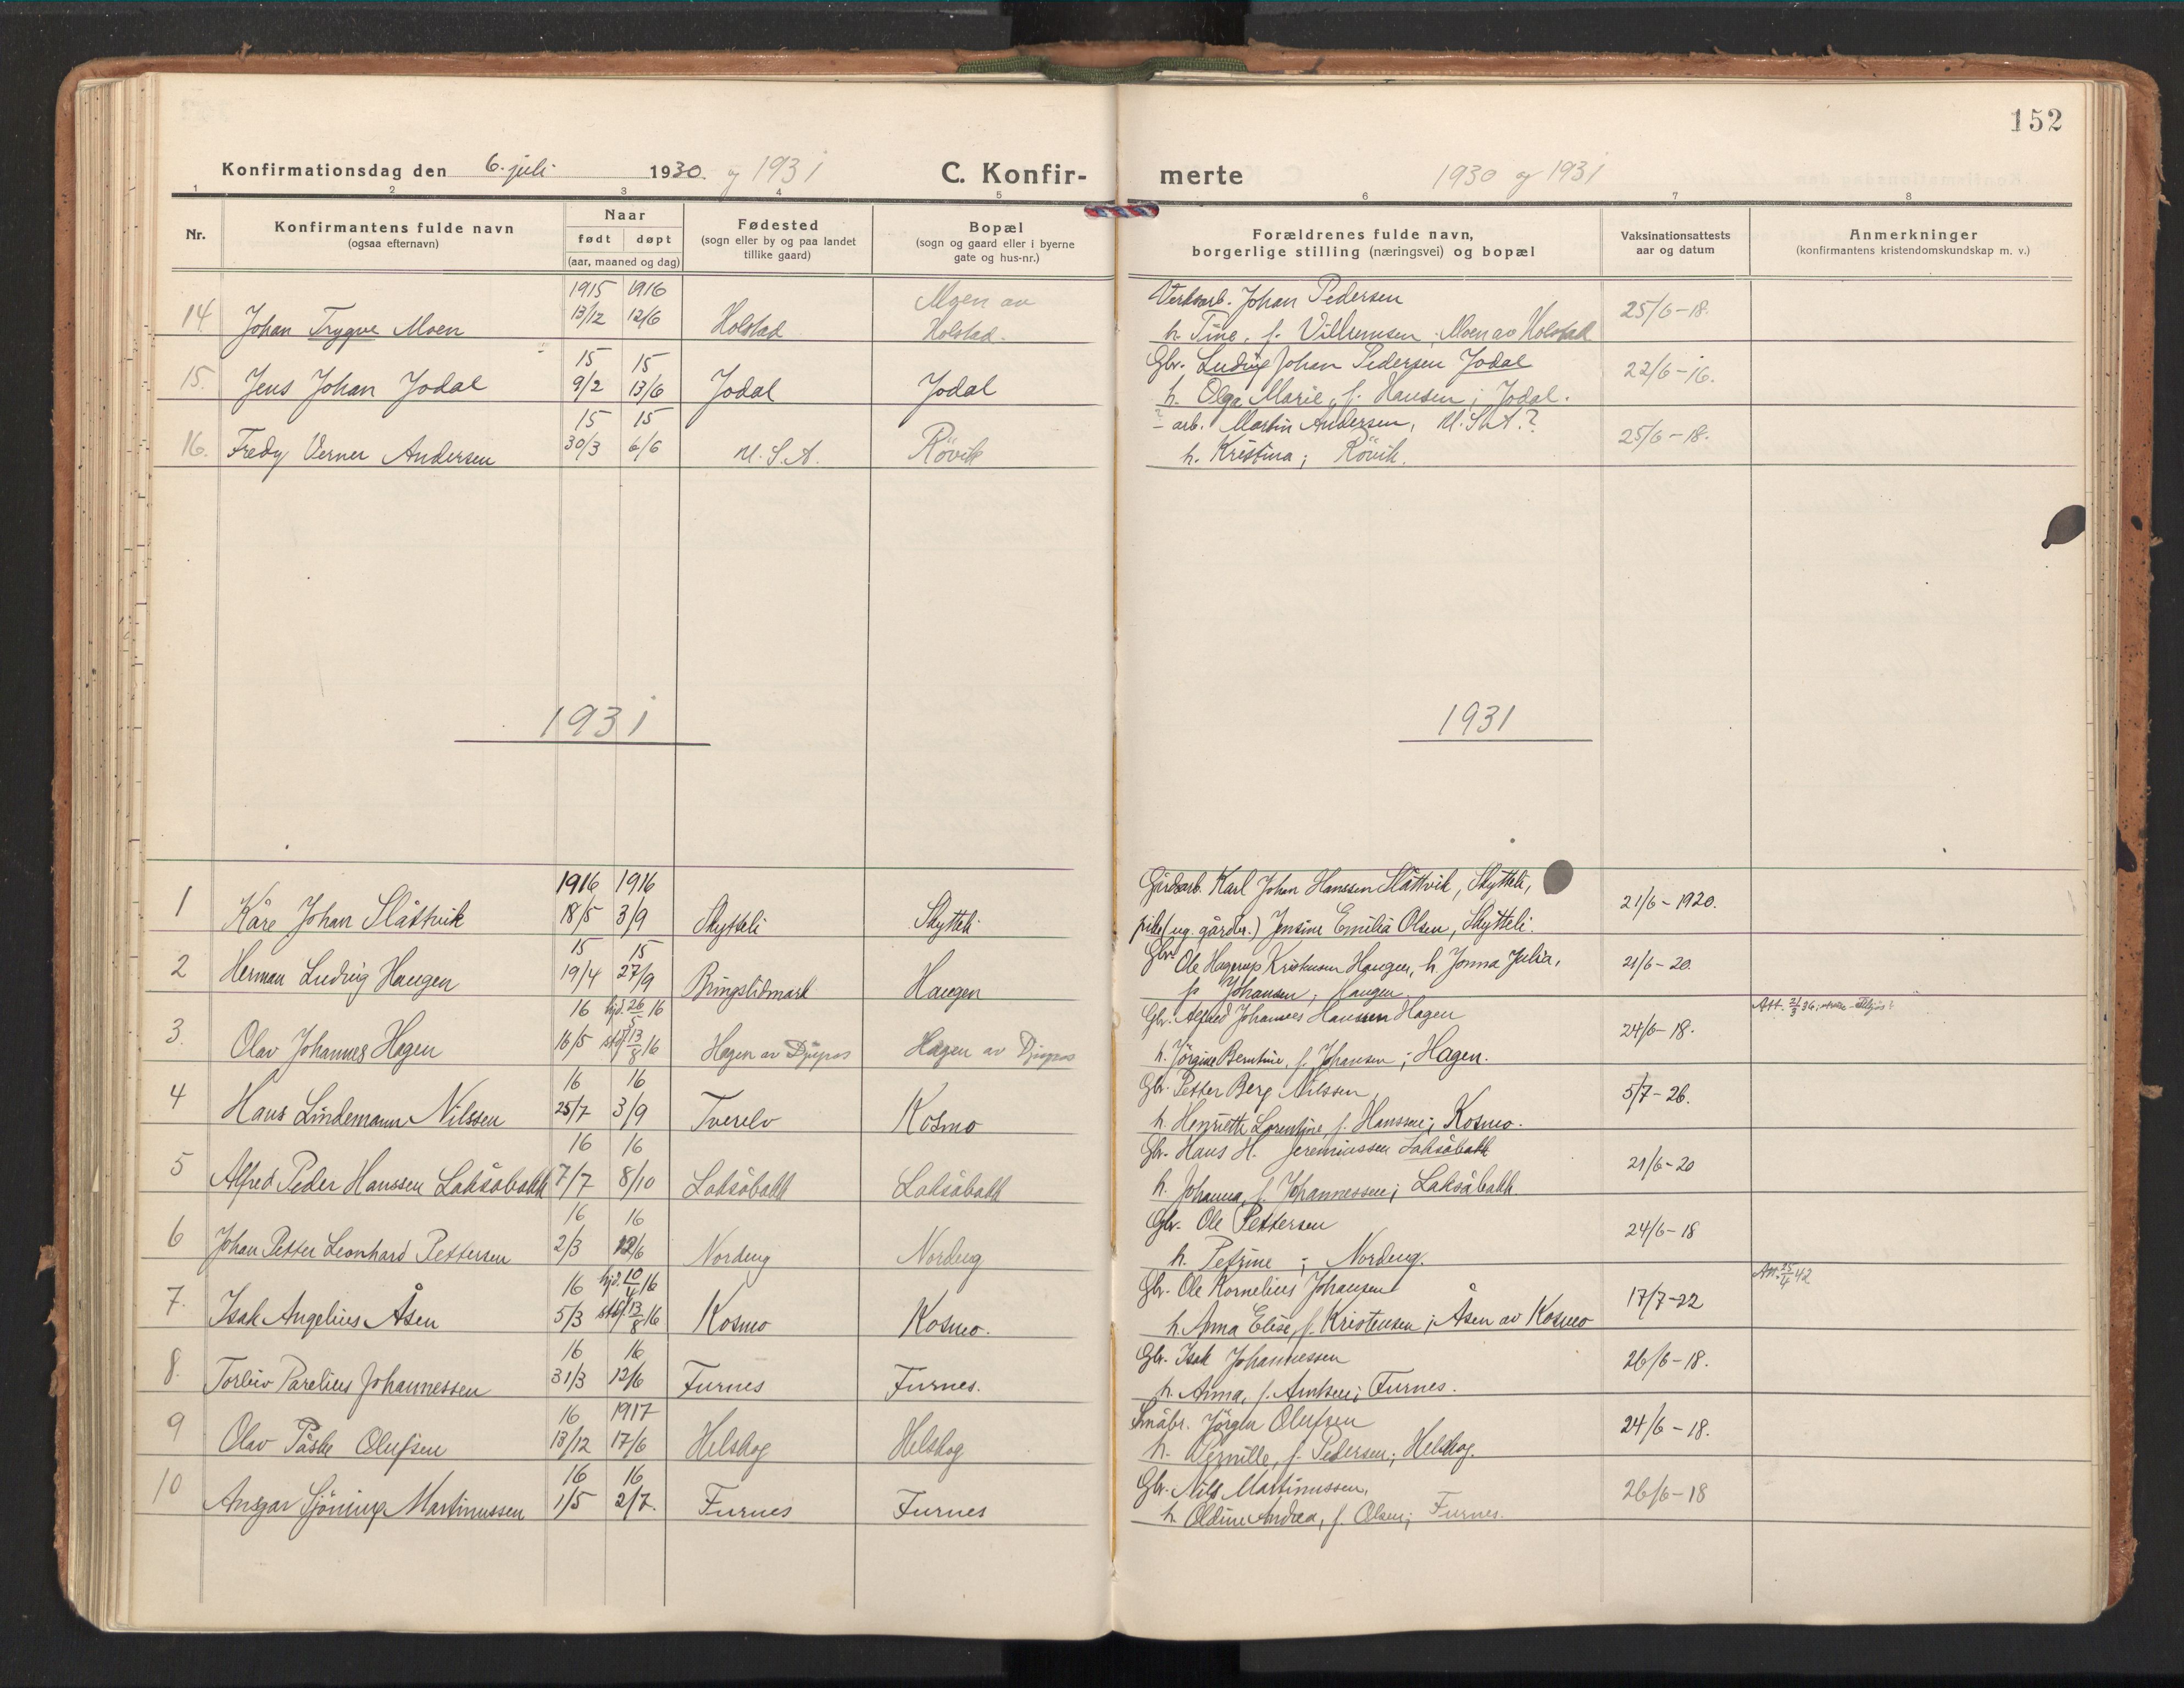 152
Konfirmationsdag den 6. juli 1930. og 1931 C. Konfir-
merte 1930 og 1931
1 2 3 4 5 6 7 8
Nr. Konfirmantens fulde navn (ogsaa efternavn) Naar født døpt (aar, maaned og dag) Fødested (sogn eller by og paa landet tillike gaard) Bopæl (sogn og gaard eller i byerne gate og hus-nr.)
Forældrenes fulde navn, borgerlige stilling (næringsvei) og bopæl Vaksinationsattests aar og datum Anmerkninger (konfirmantens kristendomskundskap m. v.)
1915 1916 Moen av Verksarb. Johan Pedersen
14 Johan Trygve Moen 13/12 12/6 Holstad Holstad. h. Tine, f. Villumsen; Moen av Holstad 25/6-18.
15 15 Gbr. Ludvig Johan Pedersen Jodal
15. Jens Johan Jodal 9/2 13/6 Jodal Jodal h. Olga Marie, f. Hansen; Jodal. 22/6-16.
15 15 ? arb. Martin Andersen, U.S.A.?
16. Fredy Verner Andersen 30/3 6/6 U.S.A. Rövik h. Kristina; Rövik. 25/6-18.
1931 1931
1916 1916 Gårdsarb. Karl Johan Hanssen Slåttvik, Skytteli,
1 Kåre Johan Slåttvik 18/5 3/9 Skytteli Skytteli pike (ug. gårdbr.) Jensine Emilia Olsen, Skytteli. 21/6-1920.
15 15 Gbr. Ole Hagerup Kristensen Haugen, h. Jonna Julia,
2 Herman Ludvig Haugen 19/4 27/9 Bringslidmark Haugen f. Johansen; Haugen 21/6-20.
16 hjd. 26/5 16 Gbr. Alfred Johannes Hanssen Hagen Att. 21/3 36
3. Olav Johannes Hagen 16/5 stdf. 13/8 16 Hagen av Djupos Hagen av Djupos h. Jörgine Berntine, f. Johansen; Hagen. 24/6-18.
16 16 Gbr. Petter Berg Nilssen,
4 Hans Lindemann Nilssen 25/7 3/9 Tverelv Kosmo h. Henriette Lorentine, f. Hanssen; Kosmo. 5/7-26.
16 16 Gbr. Hans H. Jeremiassen Laksåbakk
5 Alfred Peder Hanssen Laksåbakk 7/7 8/10 Laksåbakk Laksåbakk h. Johanna, f. Johannessen; Laksåbakk. 21/6-20
16 16 Gbr. Ole Pettersen
6 Johan Petter Leonhard Pettersen 2/3 12/6 Nordeng Nordeng h. Petrine; Nordeng. 24/6-18
16 hjd. 10/4 16 Gbr. Ole Kornelius Johansen Att. 25/4 42
7. Isak Angelius Åsen 5/3 stdf. 13/8 16 Kosmo Kosmo. h. Anna Elise, f. Kristensen; Åsen av Kosmo 17/7-22
16 16 Gbr. Isak Johannessen
8. Torleiv Parelius Johannessen 31/3 12/6 Furnes Furnes. h. Anna, f. Arntsen; Furnes. 26/6-18.
16 1917 Småbr. Jörgen Olufsen
9 Olav Påske Olufsen 13/12 17/6 Helskog Helskog h. Pernille, f. Pedersen; Helskog. 24/6-18.
16 16 Gbr. Nils Martinussen,
10 Ansgar Sjöning Martinussen 1/5 2/7. Furnes Furnes h. Oldine Andrea, f. Olsen; Furnes. 26/6-18